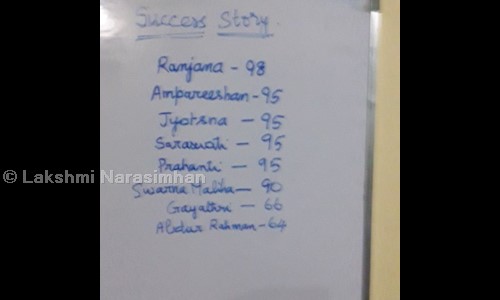 Success Story
Ranjana - 98
Ampareeshan - 95
Jyotsna - 95
Saraswati - 95
Prahanti - 95
© Lakshmi Narasimhan
Swarna Maliha - 90
Gayathri - 66
Abdur Rahman - 64